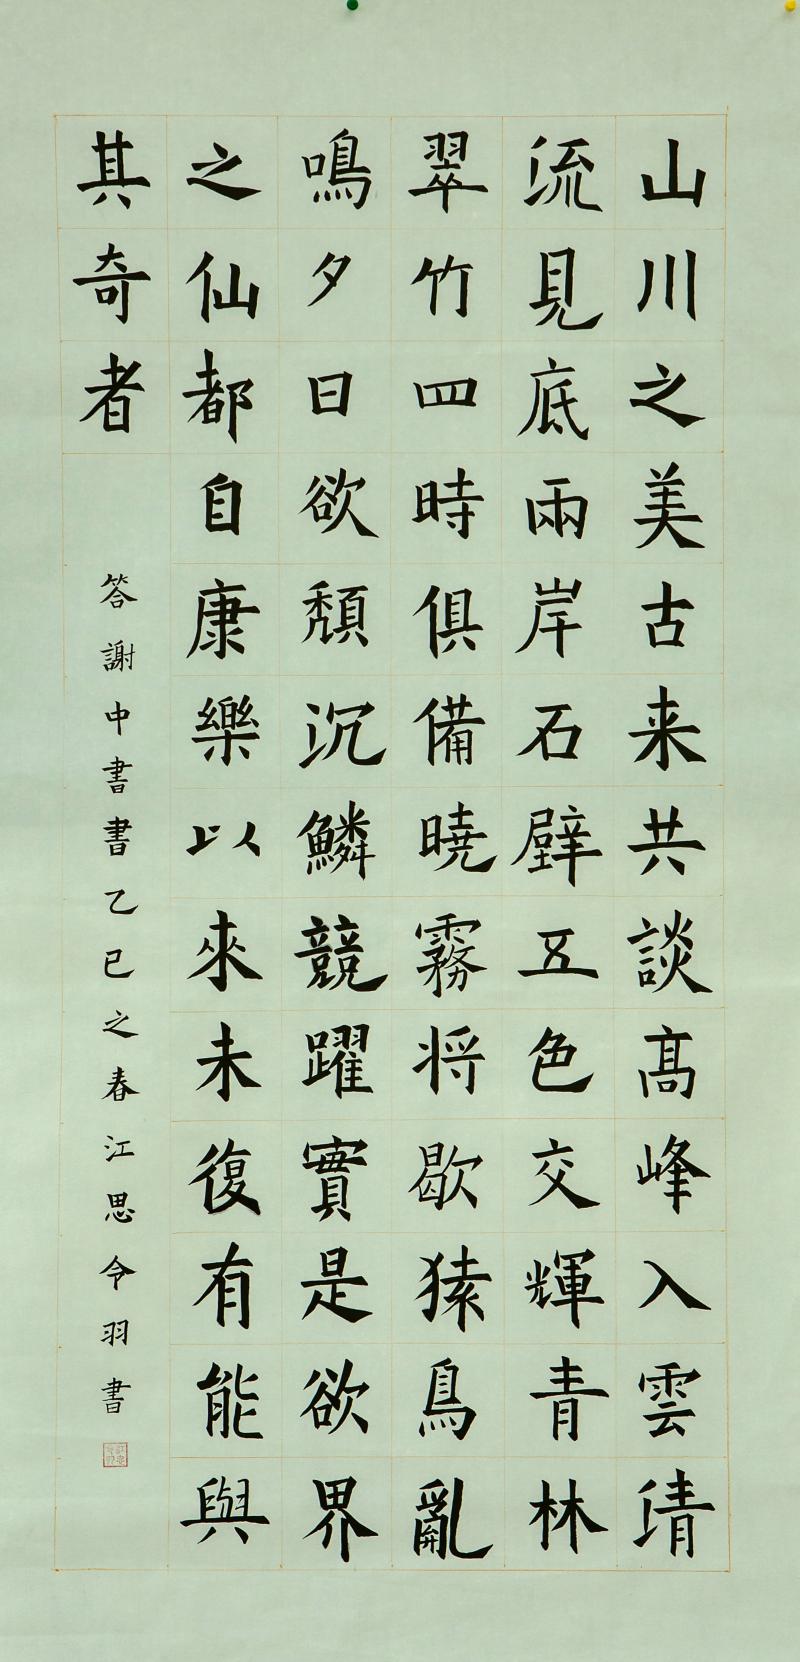 山川之美古来共談髙峰入雲清
流見底兩岸石壁五色交輝青林
翠竹四時俱備曉霧将歇猿鳥亂
鳴夕日欲頹沉鱗競躍實是欲界
之仙都自康樂以來未復有能與
其奇者
答謝中書書乙巳之春江思令羽書